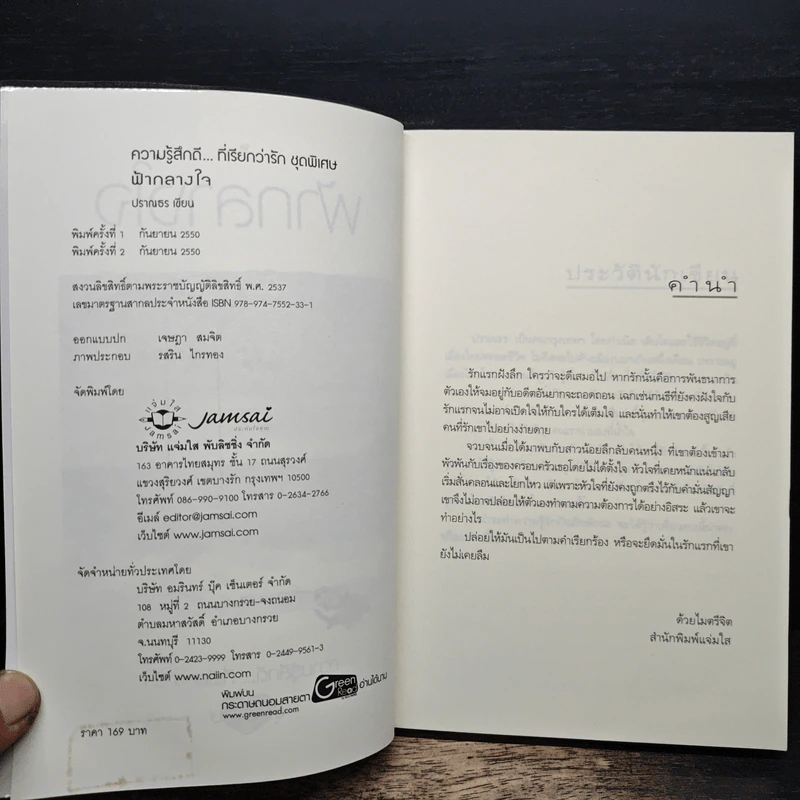 ความรู้สึกดี... ที่เรียกว่ารัก ชุดพิเศษ
ฟ้ากลางใจ
ปราณธร เขียน
พิมพ์ครั้งที่ 1 กันยายน 2550
พิมพ์ครั้งที่ 2 กันยายน 2550
สงวนลิขสิทธิ์ตามพระราชบัญญัติลิขสิทธิ์ พ.ศ. 2537
เลขมาตรฐานสากลประจำหนังสือ ISBN 978-974-7552-33-1
ออกแบบปก เจษฎา สมจิต
ภาพประกอบ รสริน ไกรทอง
จัดพิมพ์โดย
แจ่มใส
JAMSAI
Jamsai
บริษัท แจ่มใส พับลิชชิ่ง จำกัด
163 อาคารไทยสมุทร ชั้น 17 ถนนสุรวงศ์
แขวงสุริยวงศ์ เขตบางรัก กรุงเทพฯ 10500
โทรศัพท์ 086-990-9100 โทรสาร 0-2634-2766
อีเมล์ editor@jamsai.com
เว็บไซต์ www.jamsai.com
จัดจำหน่ายทั่วประเทศโดย
บริษัท อมรินทร์ บุ๊ค เซ็นเตอร์ จำกัด
108 หมู่ที่ 2 ถนนบางกรวย-จงถนอม
ตำบลมหาสวัสดิ์ อำเภอบางกรวย
จ.นนทบุรี 11130
โทรศัพท์ 0-2423-9999 โทรสาร 0-2449-9561-3
เว็บไซต์ www.naiin.com
พิมพ์บน
กระดาษถนอมสายตา Green Read อ่านได้นาน
www.greenread.com
ราคา 169 บาท
คำนำ
รักแรกฝังลึก ใครว่าจะดีเสมอไป หากรักนั้นคือการพันธนาการ
ตัวเองให้จมอยู่กับอดีตอันยากจะถอดถอน เฉกเช่นกนธีที่ยังคงฝังใจกับ
รักแรกจนไม่อาจเปิดใจให้กับใครได้เต็มใจ และนั่นทำให้เขาต้องสูญเสีย
คนที่รักเขาไปอย่างง่ายดาย
จวบจนเมื่อได้มาพบกับสาวน้อยลึกลับคนหนึ่ง ที่เขาต้องเข้ามา
พัวพันกับเรื่องของครอบครัวเธอโดยไม่ได้ตั้งใจ หัวใจที่เคยหนักแน่นกลับ
เริ่มสั่นคลอนและโยกไหว แต่เพราะหัวใจที่ยังคงถูกตรึงไว้กับคำมั่นสัญญา
เขาจึงไม่อาจปล่อยให้ตัวเองทำตามความต้องการได้อย่างอิสระ แล้วเขาจะ
ทำอย่างไร
ปล่อยให้มันเป็นไปตามคำเรียกร้อง หรือจะยึดมั่นในรักแรกที่เขา
ยังไม่เคยลืม
ด้วยไมตรีจิต
สำนักพิมพ์แจ่มใส